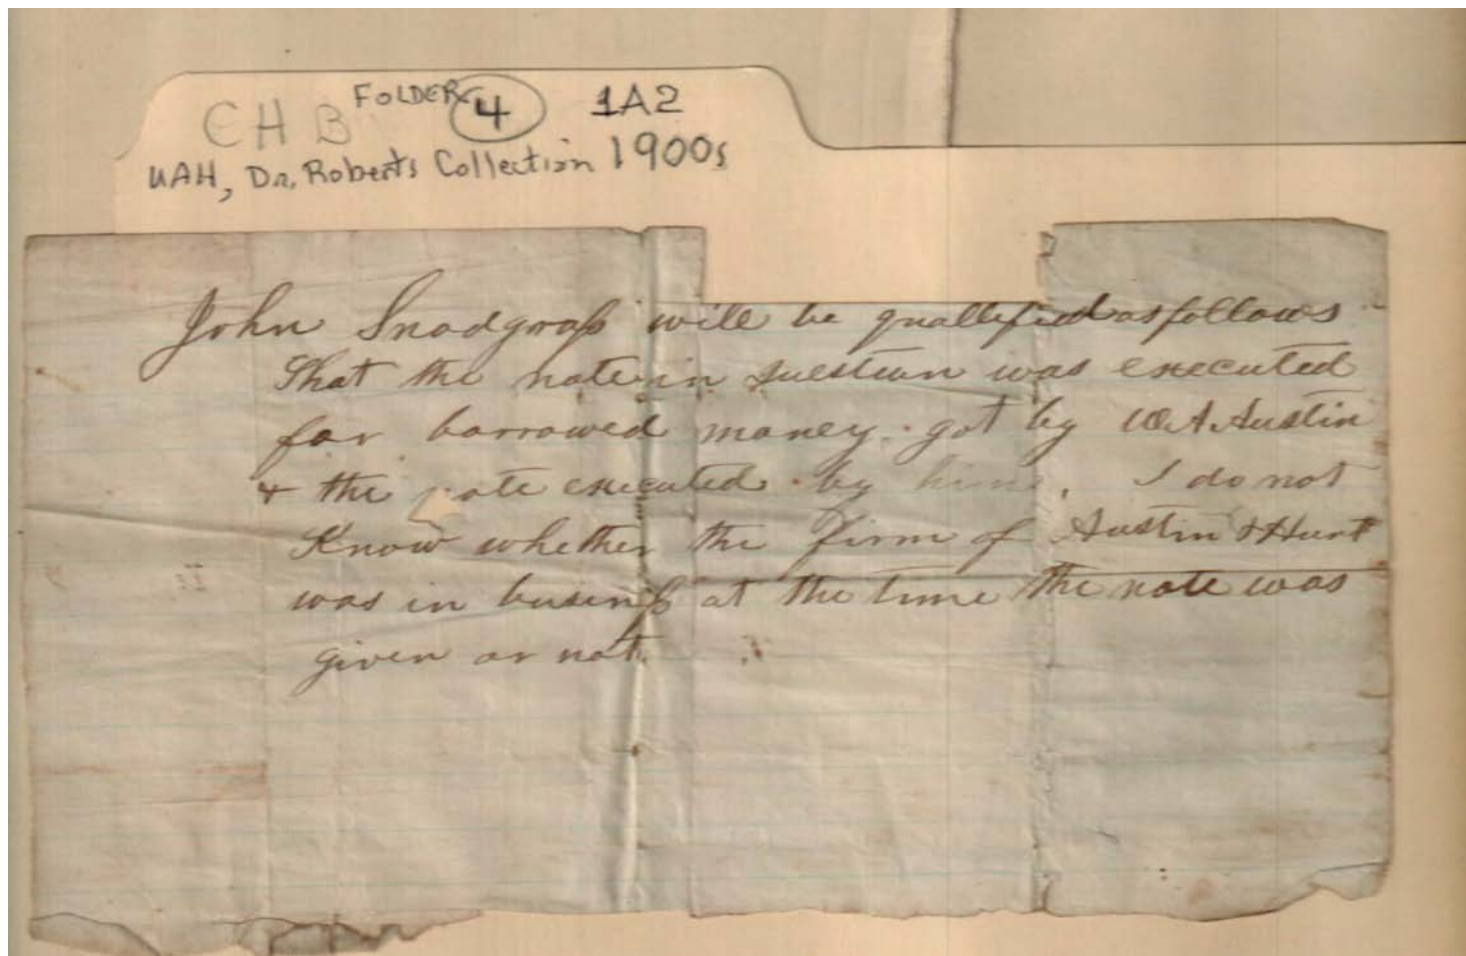 CHB FOLDER 4 1A2
UAH, Dr. Roberts Collection 1900s
John Snodgrass will be quallified as follows
That the note in question was executed
for borrowed money. got by W A Austin
+ the note executed by him. I do not
Know whether the firm of Austin & Hunt
was in business at the time the note was
given or not.